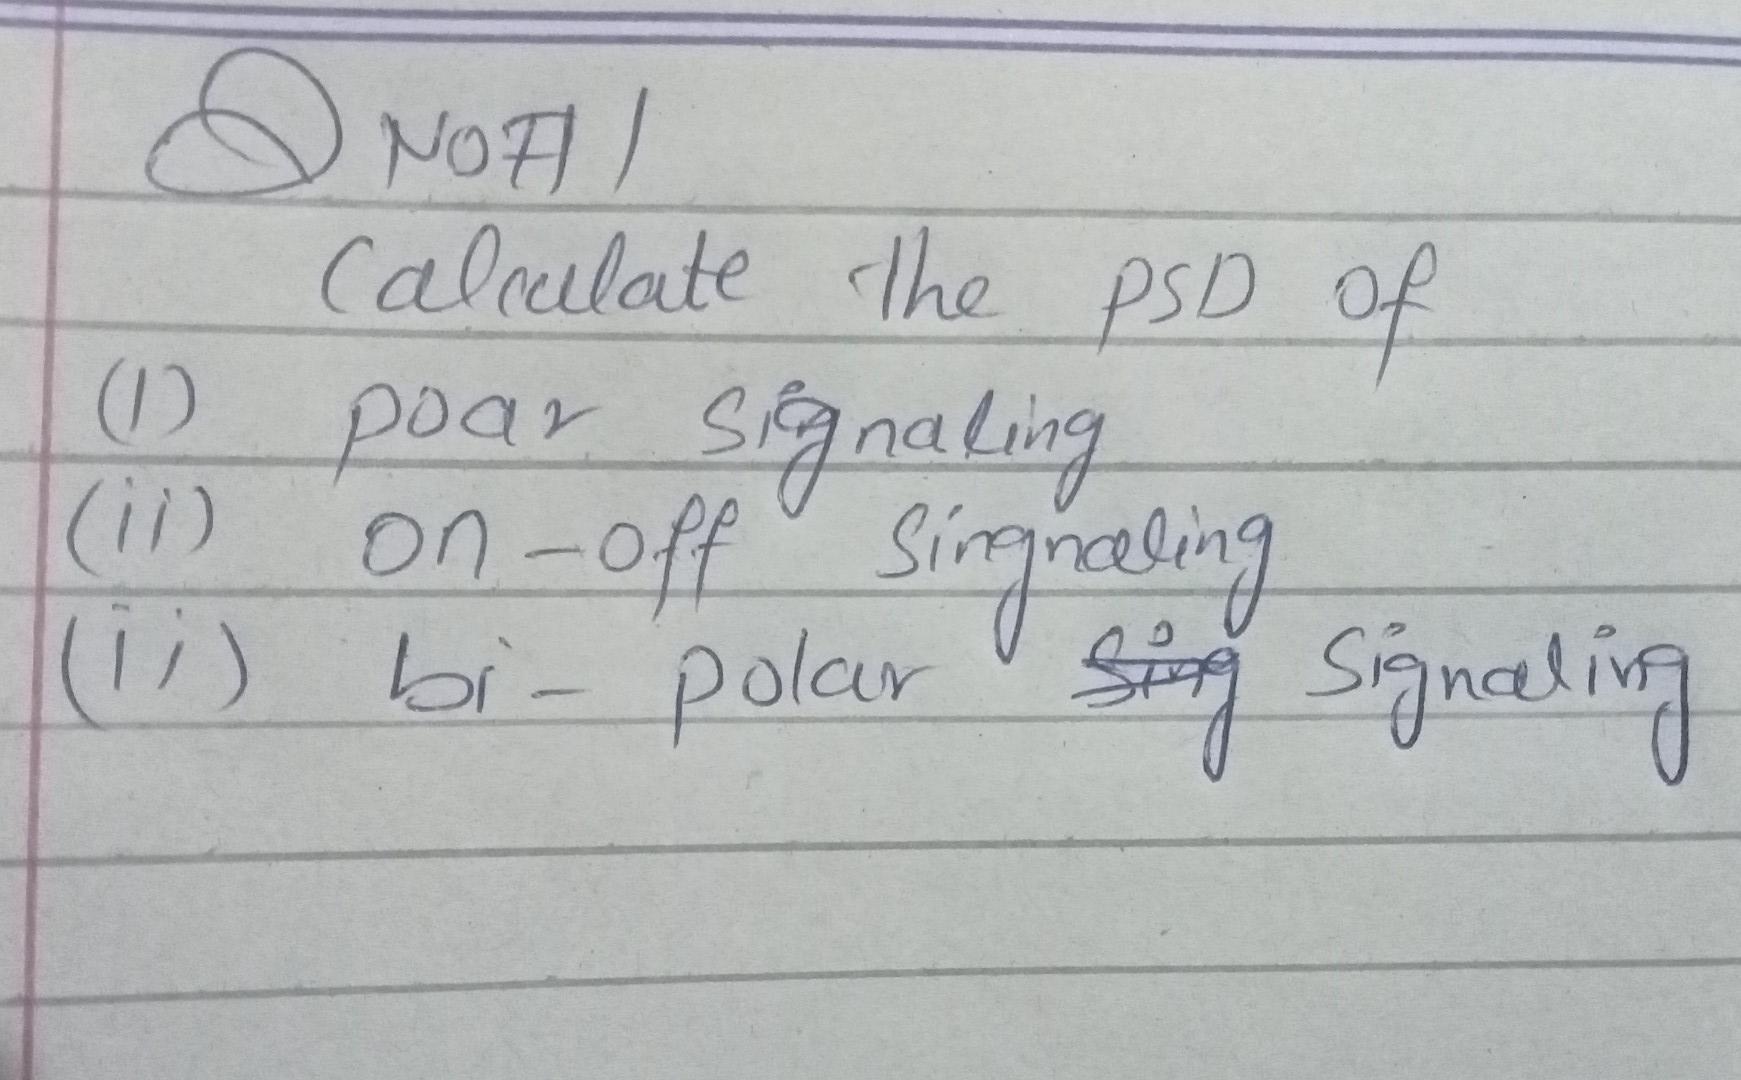 Q NO# 1
Calculate the PSD of
(1) poar signaling
(ii) on-off singnaling
(ii) bi-polar sing signaling